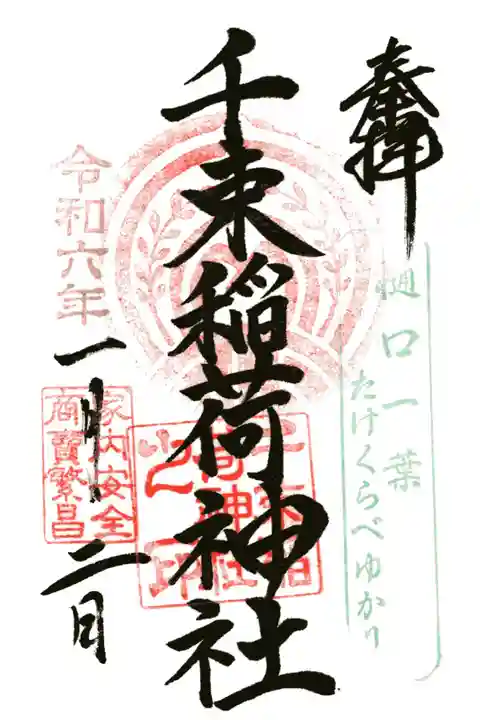 奉拝
樋口一葉
たけくらべゆかり
千束稲荷神社
千束稲荷神社之印
令和六年
一月二日
家内安全
商賣繁昌